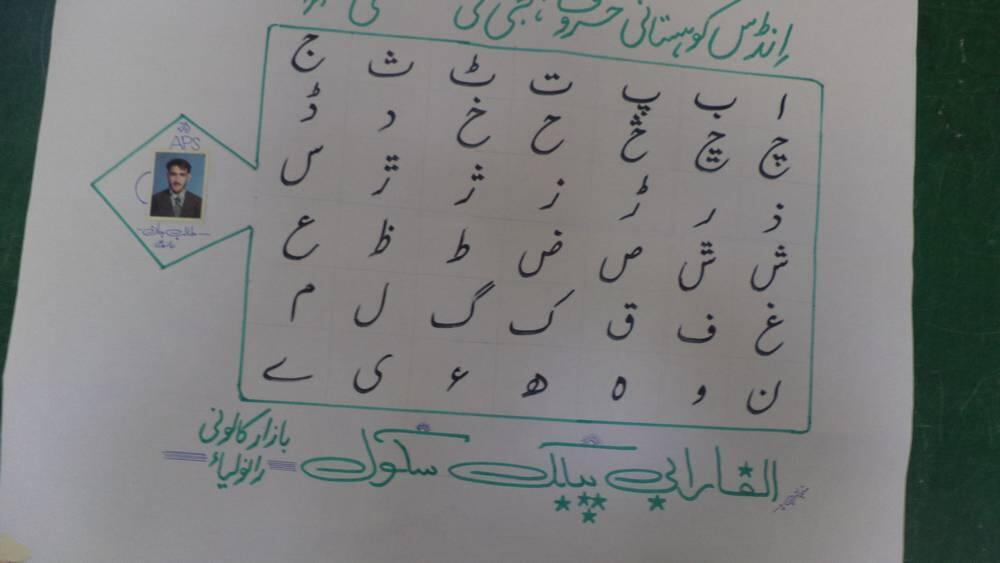 اِنڈس کوہستانی حروف تہجی کی
ا ب پ ت ٹ ث ج
چ څ ح خ د ڈ
ذ ر ڑ ز ژ ڙ س
ش ݜ ص ض ط ظ ع
غ ف ق ک گ ل م
ن و ہ ھ ء ی ے
APS
الفارابی پبلک سکول
بازار کالونی
رانولیاء